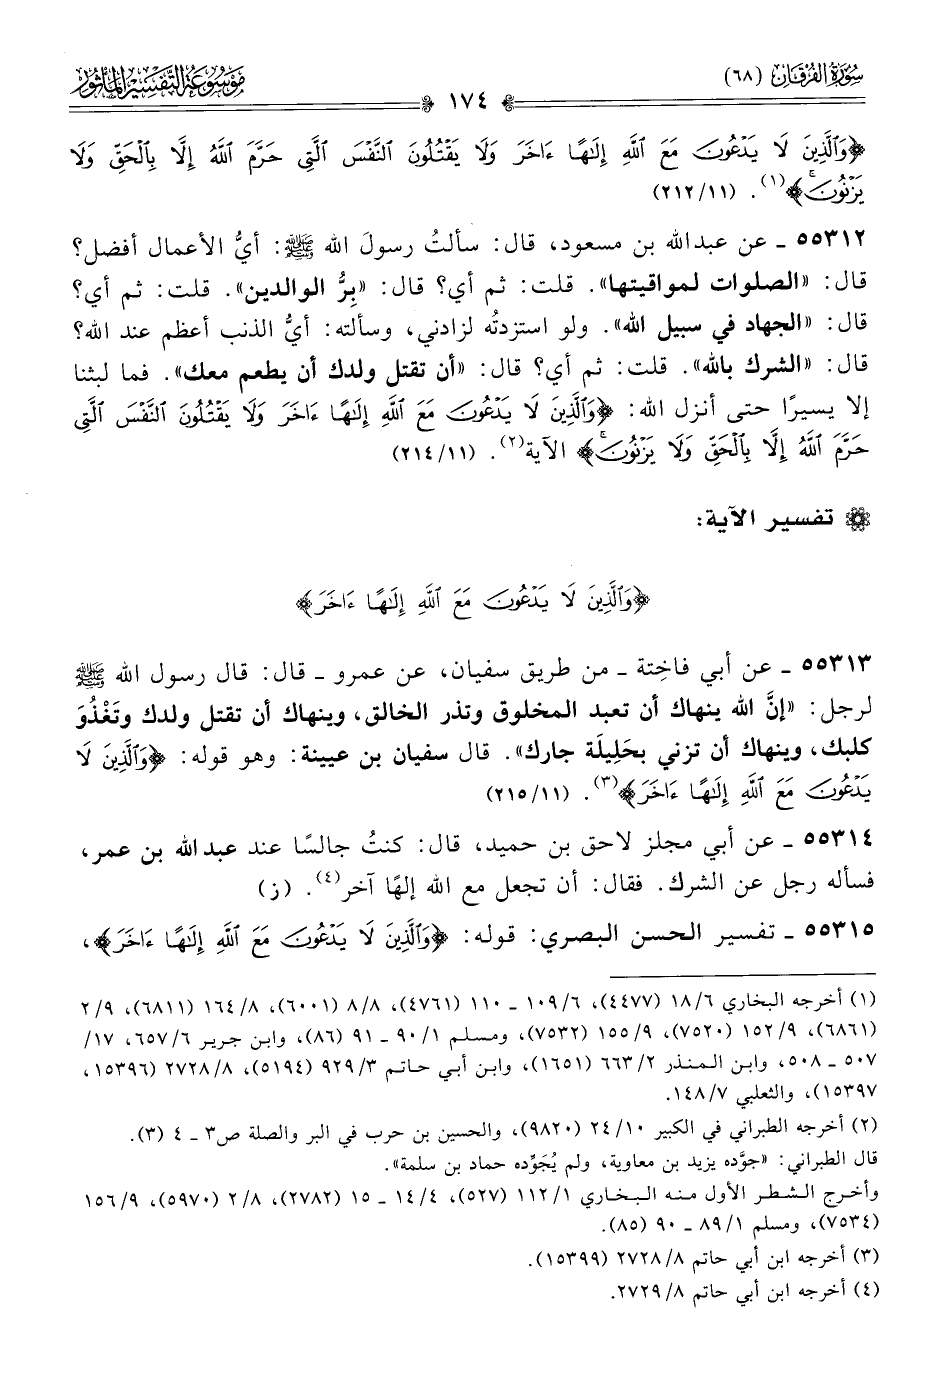 سُورَةُ الفُرْقَان (٦٨)
١٧٤
مَوْسُوعَةُ التَّفْسِيرِ المَأْثُور
﴿وَٱلَّذِينَ لَا يَدْعُونَ مَعَ ٱللَّهِ إِلَٰهًا ءَاخَرَ وَلَا يَقْتُلُونَ ٱلنَّفْسَ ٱلَّتِى حَرَّمَ ٱللَّهُ إِلَّا بِٱلْحَقِّ وَلَا
يَزْنُونَ﴾(١). (٢١٢/١١)
٥٥٣١٢ ـ عن عبدالله بن مسعود، قال: سألتُ رسولَ الله ﷺ: أيُّ الأعمال أفضل؟
قال: «الصلوات لمواقيتها». قلت: ثم أي؟ قال: «بِرُّ الوالدين». قلت: ثم أي؟
قال: «الجهاد في سبيل الله». ولو استزدتُه لزادني، وسألته: أيُّ الذنب أعظم عند الله؟
قال: «الشرك بالله». قلت: ثم أي؟ قال: «أن تقتل ولدك أن يطعم معك». فما لبثنا
إلا يسيرًا حتى أنزل الله: ﴿وَٱلَّذِينَ لَا يَدْعُونَ مَعَ ٱللَّهِ إِلَٰهًا ءَاخَرَ وَلَا يَقْتُلُونَ ٱلنَّفْسَ ٱلَّتِى
حَرَّمَ ٱللَّهُ إِلَّا بِٱلْحَقِّ وَلَا يَزْنُونَ﴾ الآية(٢). (٢١٤/١١)
تفسير الآية:
﴿وَٱلَّذِينَ لَا يَدْعُونَ مَعَ ٱللَّهِ إِلَٰهًا ءَاخَرَ﴾
٥٥٣١٣ ـ عن أبي فاخِتة ـ من طريق سفيان، عن عمرو ـ قال: قال رسول الله ﷺ
لرجل: «إنَّ الله ينهاك أن تعبد المخلوق وتذر الخالق، وينهاك أن تقتل ولدك وتَغْذُوَ
كلبك، وينهاك أن تزني بحَلِيلَة جارك». قال سفيان بن عيينة: وهو قوله: ﴿وَٱلَّذِينَ لَا
يَدْعُونَ مَعَ ٱللَّهِ إِلَٰهًا ءَاخَرَ﴾(٣). (٢١٥/١١)
٥٥٣١٤ ـ عن أبي مجلز لاحق بن حميد، قال: كنتُ جالسًا عند عبدالله بن عمر،
فسأله رجل عن الشرك. فقال: أن تجعل مع الله إلهًا آخر(٤). (ز)
٥٥٣١٥ ـ تفسير الحسن البصري: قوله: ﴿وَٱلَّذِينَ لَا يَدْعُونَ مَعَ ٱللَّهِ إِلَٰهًا ءَاخَرَ﴾،
(١) أخرجه البخاري ١٨/٦ (٤٤٧٧)، ١٠٩/٦ ـ ١١٠ (٤٧٦١)، ٨/٨ (٦٠٠١)، ١٦٤/٨ (٦٨١١)، ٢/٩
(٦٨٦١)، ١٥٢/٩ (٧٥٢٠)، ١٥٥/٩ (٧٥٣٢)، ومسلم ٩٠/١ ـ ٩١ (٨٦)، وابن جرير ٦٥٧/٦، ١٧/
٥٠٧ ـ ٥٠٨، وابن المنذر ٦٦٣/٢ (١٦٥١)، وابن أبي حاتم ٩٢٩/٣ (٥١٩٤)، ٢٧٢٨/٨ (١٥٣٩٦،
١٥٣٩٧)، والثعلبي ١٤٨/٧.
(٢) أخرجه الطبراني في الكبير ٢٤/١٠ (٩٨٢٠)، والحسين بن حرب في البر والصلة ص٣ ـ ٤ (٣).
قال الطبراني: «جوَّده يزيد بن معاوية، ولم يُجَوِّده حماد بن سلمة».
وأخرج الشطر الأول منه البخاري ١١٢/١ (٥٢٧)، ١٤/٤ ـ ١٥ (٢٧٨٢)، ٢/٨ (٥٩٧٠)، ١٥٦/٩
(٧٥٣٤)، ومسلم ٨٩/١ ـ ٩٠ (٨٥).
(٣) أخرجه ابن أبي حاتم ٢٧٢٨/٨ (١٥٣٩٩).
(٤) أخرجه ابن أبي حاتم ٢٧٢٩/٨.